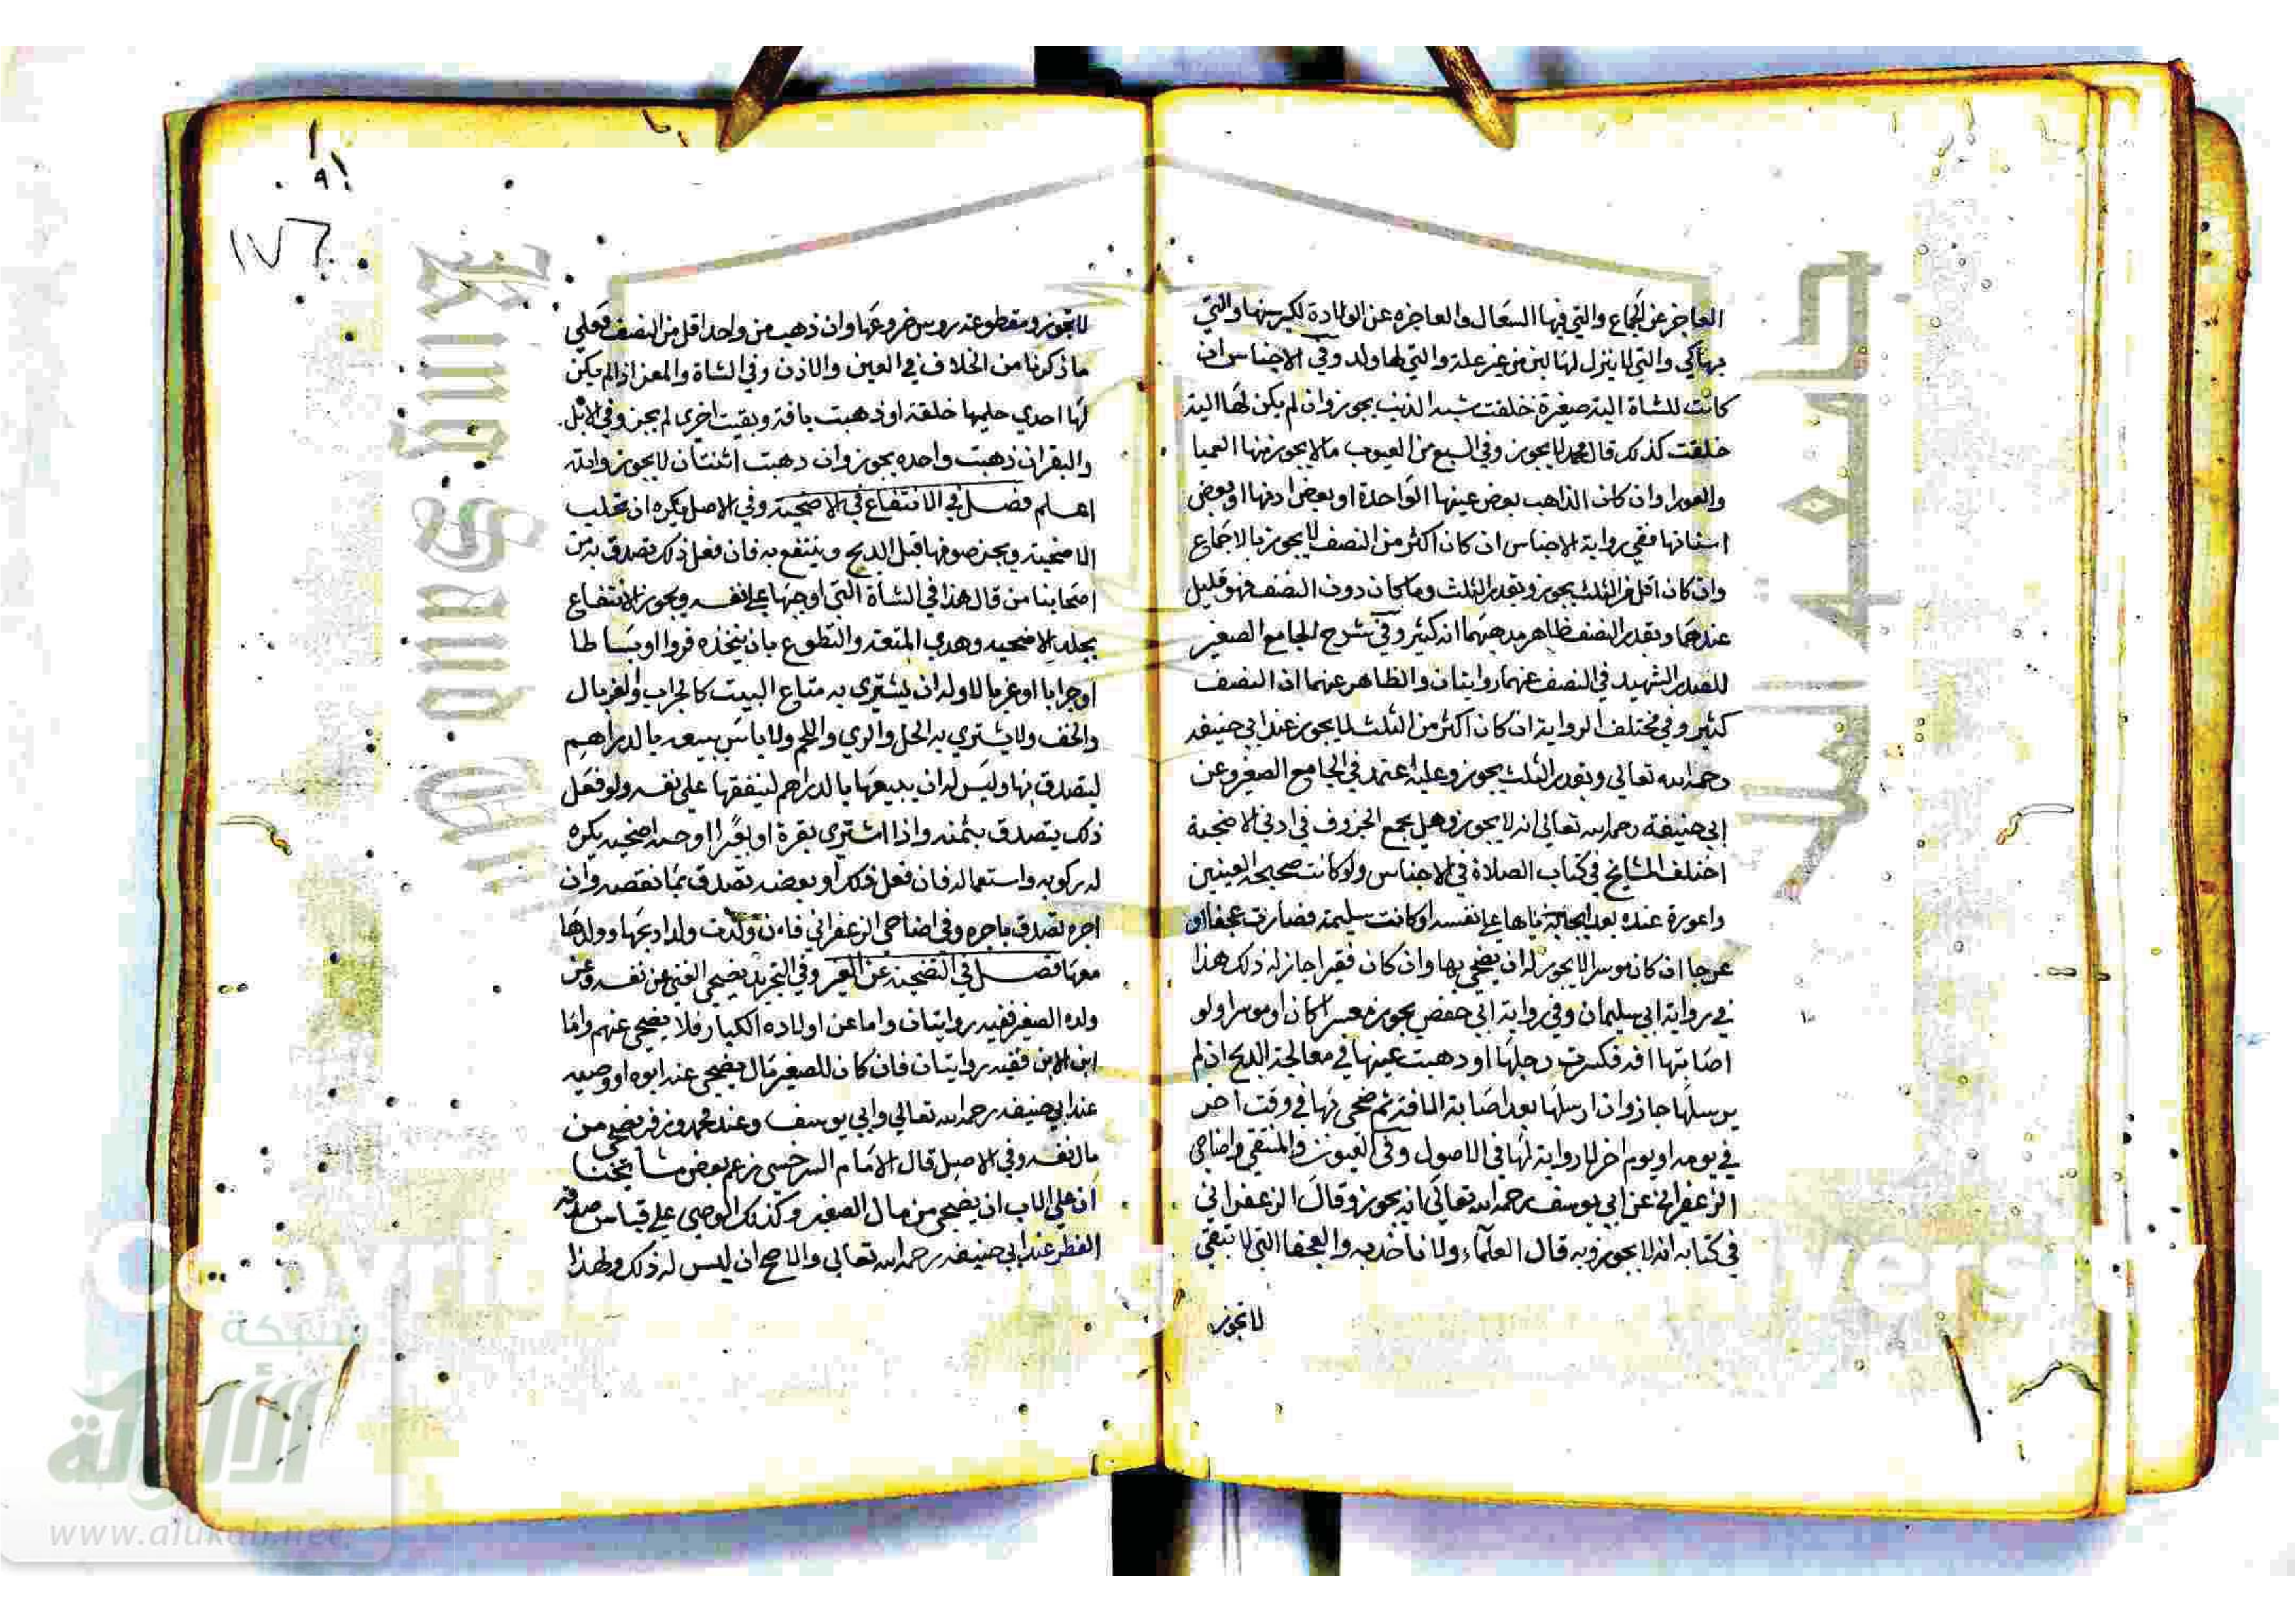 العاجز عن الجماع والتي فيها السعال والعاجزه عن الولادة لكبر سنها والتي
بها كي والتي لا ينزل لها لبن من غير علة والتي لها ولد وفي الاجناس ان
كانت للشاة الية صغيرة خلقت شبه الذنب يجوز وان لم يكن لها الية
خلقت كذلك قال محمد لا يجوز وفي السبع من العيوب ما لا يجوز منها العميا
والعورا وان كان الذاهب بعض عينها الواحدة او بعض اذنها او بعض
اسنانها ففي رواية الاجناس ان كان اكثر من النصف لا يجوز بالاجماع
وان كان اقل من الثلث يجوز وبقدر الثلث وما كان دون النصف فهو قليل
عندهما وبقدر النصف ظاهر مذهبهما انه كثير وفي شرح الجامع الصغير
للصدر الشهيد في النصف عنهما روايتان والظاهر عنهما ان النصف
كثير وفي مختلف الرواية ان كان اكثر من الثلث لا يجوز عند ابي حنيفه
رحمه الله تعالى وبقدر الثلث يجوز وعليه اعتمد في الجامع الصغير وعن
ابي حنيفة رحمه الله تعالى انه لا يجوز وهل يجمع الخروق في اذني الاضحية
اختلف المشايخ في كتاب الصلاة في الاجناس ولو كانت صحيحة العينين
واعورة عنده بعد ايجابه اياها على نفسه او كانت سليمة فصارت عجفا او
عرجا ان كان موسرا لا يجوز له ان يضحي بها وان كان فقيرا جاز له ذلك هذا
في رواية ابي سليمان وفي رواية ابي حفص يجوز معسرا كان او موسرا ولو
اصابتها افه فكسرت رجلها او ذهبت عينها في معالجة الذبح ان لم
يرسلها جاز وان ارسلها بعد اصابة الافة ثم ضحى بها في وقت اخر
في يومه او يوم اخر لا رواية لها في الاصول وفي العيون والمنتقي واضاحي
الزعفراني عن ابي يوسف رحمه الله تعالى انه يجوز وقال الزعفراني
في كتابه انه لا يجوز وبه قال العلماء ولا ناخذ به والعجفا التي لا تنقي
لا تجوز
١٩١
١٧٦
لا تجوز ومقطوعة روس ضروعها وان ذهب من واحد اقل من النصف فعلى
ما ذكرنا من الخلاف في العين والاذن وفي الشاة والمعز اذا لم يكن
لها احدي حلميها خلقة او ذهبت بافة وبقيت اخرى لم يجز وفي الابل
والبقر ان ذهبت واحده يجوز وان ذهبت اثنتان لا يجوز والله
اعلم فصل في الانتفاع في الاضحية وفي الاصل يكره ان تحلب
الاضحية ويجز صوفها قبل الذبح وينتفع به فان فعل ذلك تصدق به من
اصحابنا من قال هذا في الشاة التي اوجبها على نفسه ويجوز الانتفاع
بجلد الاضحية وهدي المتعة والتطوع بان يتخذه فروا او بساطا
او جرابا او غربالا وله ان يشتري به متاع البيت كالجراب والغربال
والخف ولا يشتري به الخل والزي واللحم ولا باس ببيعه بالدراهم
ليتصدق بها وليس له ان يبيعها بالدراهم لينفقها على نفسه ولو فعل
ذلك يتصدق بثمنه واذا اشترى بقرة او بعيرا اوجبه اضحية يكره
له ركوبه واستعماله فان فعل ذلك او بعضه تصدق بما نقصه وان
اجره تصدق باجره وفي اضاحي الزعفراني فان ولدت ولدا ذبحها وولدها
معها فصل في التضحية عن الغير وفي التجريد يضحي الغني عن نفسه وعن
ولده الصغير ففيه روايتان واما عن اولاده الكبار فلا يضحي عنهم واما
ابن الابن ففيه روايتان فان كان للصغير مال يضحي عنه ابوه او وصيه
عند ابي حنيفه رحمه الله تعالى وابي يوسف وعند محمد وزفر يضحي من
مال نفسه وفي الاصل قال الامام السرخسي زعم بعض مشايخنا
ان على الاب ان يضحي من مال الصغير وكذلك الوصي على قياس صدقة
الفطر عند ابي حنيفه رحمه الله تعالى والاصح ان ليس له ذلك ولهذا
شبكة
الألوكة
www.alukah.net